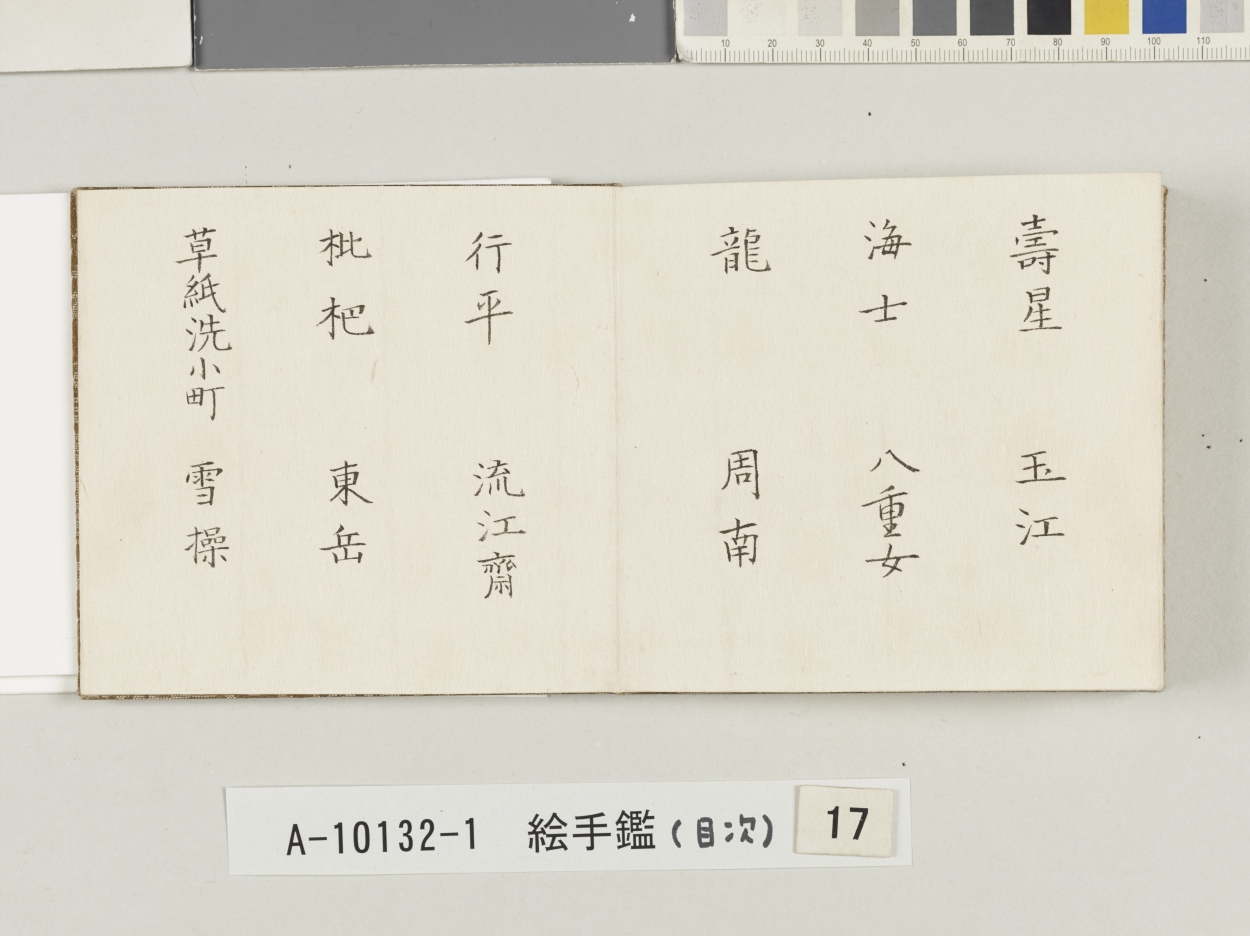 10 20 30 40 50 60 70 80 90 100 110
壽星 玉江
海士 八重女
龍 周南
行平 流江齋
枇杷 東岳
草紙洗小町 雪操
A-10132-1 絵手鑑(目次) 17